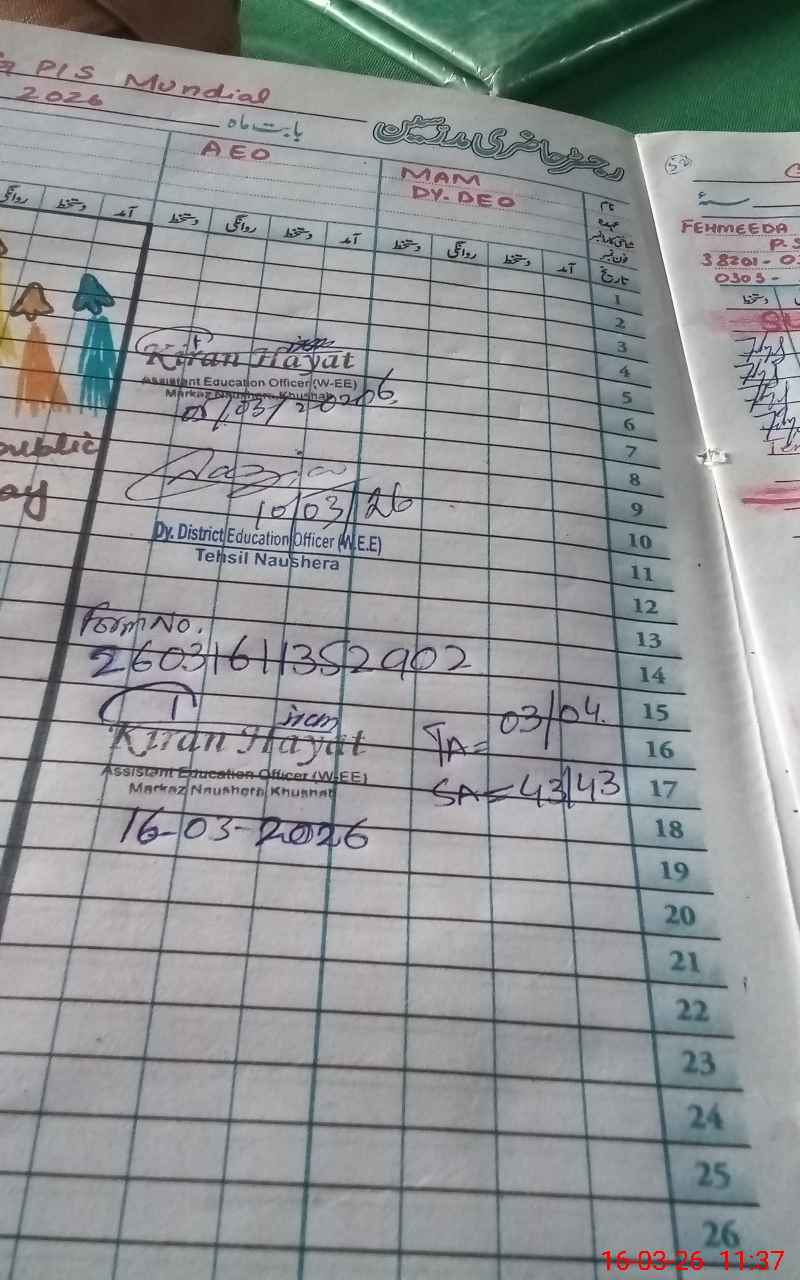 PIS Mundial
2026
بابت ماہ
رجسٹر حاضری مدرسین
AEO
MAM
DY. DEO
نام
عہدہ
فون نمبر
تاریخ
روانگی دستخط آمد دستخط روانگی دستخط آمد دستخط روانگی دستخط آمد
1
2
3
4
5
6
7
8
9
10
11
12
13
14
15
16
17
18
19
20
21
22
23
24
25
26
public
ay
Kiran Hayat
Assistant Education Officer (W-EE)
Markaz Naushera Khushab
/03/2026
10/03/26
Dy. District Education Officer (W.E.E)
Tehsil Naushera
Form No.
26031611352902
Kiran Hayat
Assistant Education Officer (W-EE)
Markaz Naushera Khushab
16-03-2026
TA= 03/04
SA= 43/43
52
FEHMEEDA
P.S
38201-0
0303-
دستخط
16-03-26 11:37